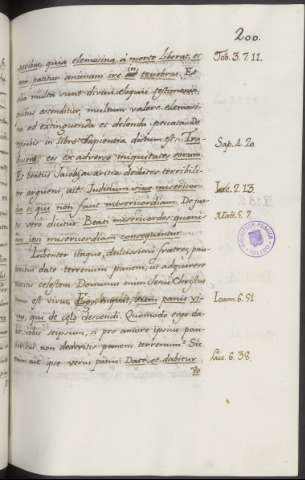 200.
quia elemosina à morte liberat, et
non patitur animam ire in tenebras. Et
multa sunt divini eloquii testimonia,
quibus ostenditur, multum valere elemosi-
ad extinguenda et delenda peccata. De
in libro Sapientia dictum est: Tra-
ducent eos ex adverso iniquitates eorum.
Et beatus Jacobus avaritia deditos terribili-
ter arguens ait. Judicium sine misericor-
dia ei qui non facit misericordiam. De pu-
vero dicitur. Beati misericordes, quoni-
am ipsi misericordiam consequentur.
Libenter itaque, dulcissimi fratres, pau-
date terrenum panem, ut adquirere
celestem. Dominus enim Jesus Christus
est vivus. Ego, inquit, sum panis vi-
vus, qui de celo descendi. Quomodo ergo da-
vobis seipsum, si pro amore ipsius pau-
non dederitis panem terrenum? Sic
enim ait ipse verus panis. Date, et dabitur
vo
Tob. 3. 7. 11.
Sap. 4. 20
Jac. 2. 13.
Matt. 5. 7
Ioann. 6. 51
Luc. 6. 38